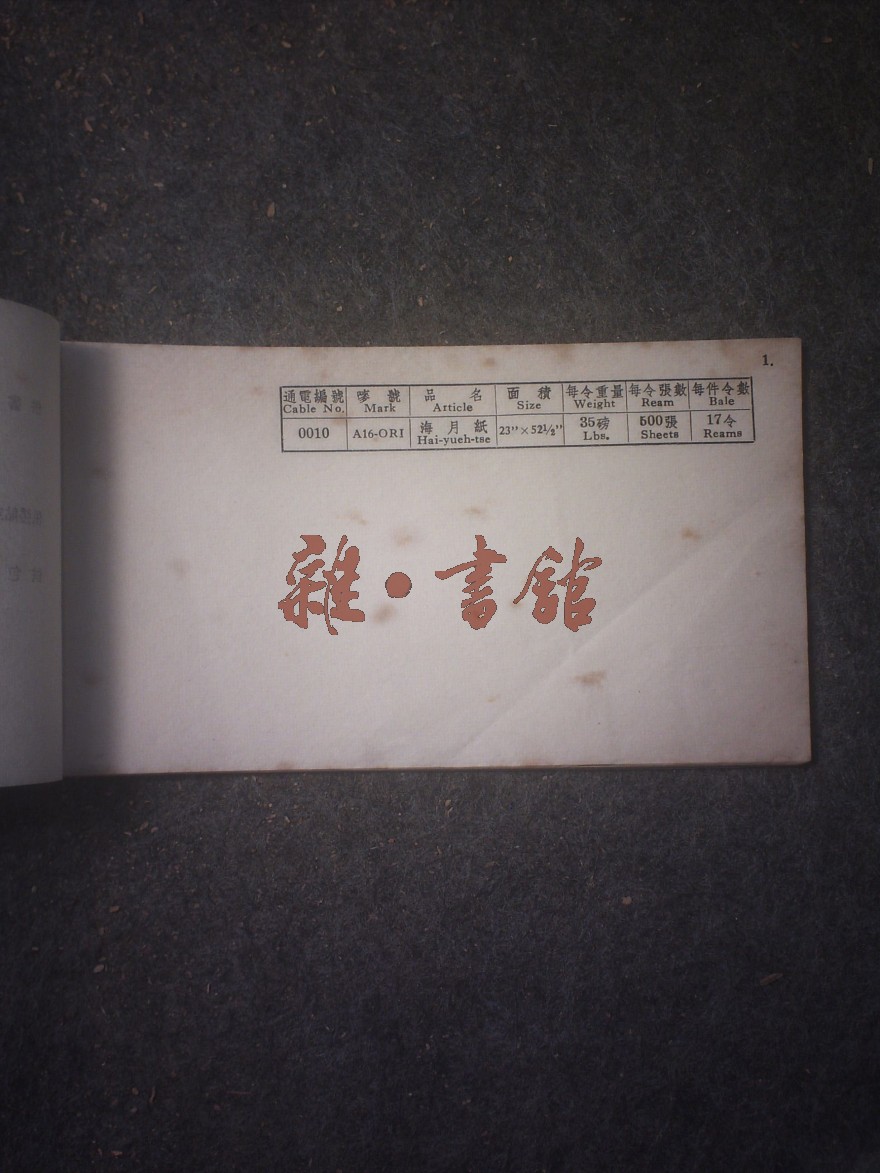 1.
通電編號 嘜號 品名 面積 每令重量 每令張數 每件令數
Cable No. Mark Article Size Weight Ream Bale
0010 A16-ORI 海月紙 23"×52½" 35磅 500張 17令
Hai-yueh-tse Lbs. Sheets Reams
雜·書館